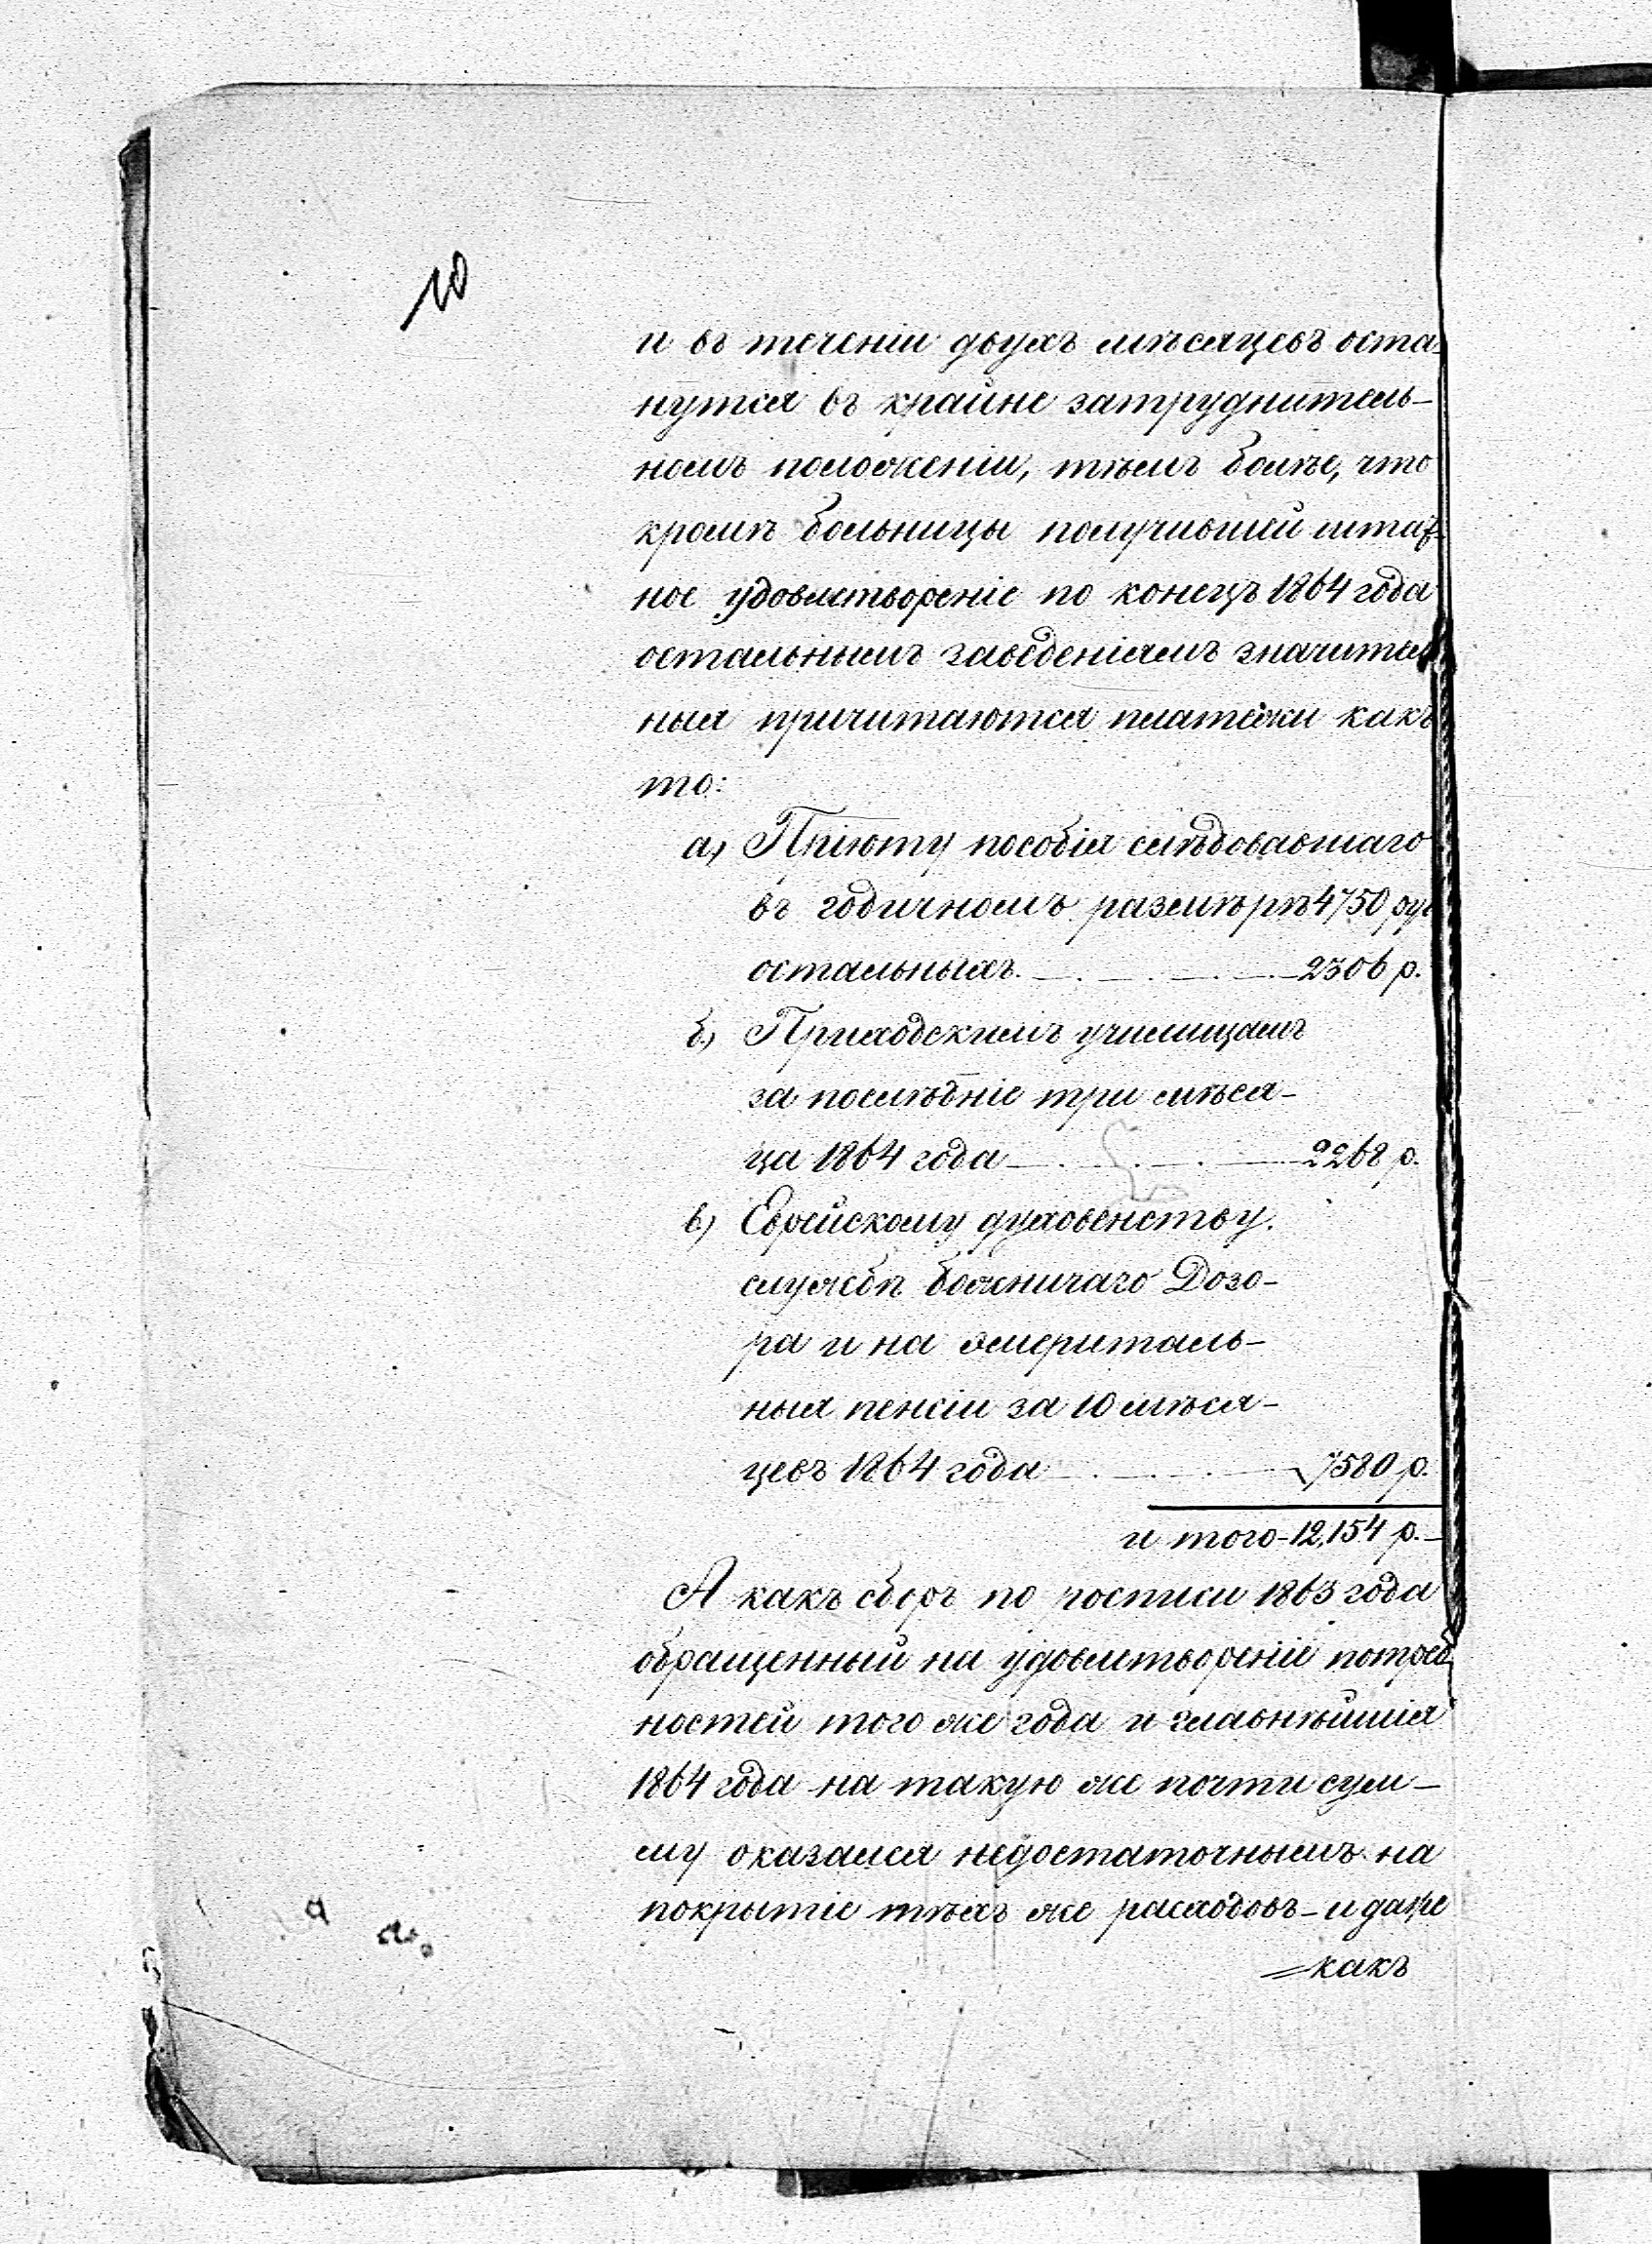 10
и въ теченіи двухъ мѣсяцевъ оста-
нутся въ крайне затруднитель-
номъ положеніи, тѣмъ болѣе, что
кромѣ больницы получившей штат-
ное удовлетвореніе по конецъ 1864 года
остальнымъ заведеніямъ значитель
ныя причитаются платежи какъ
то:
а) Пріюту пособія слѣдовавшаго
въ годичномъ размѣрѣ 4750 руб
остальныхъ 2306 р.
б) Приходскимъ училищамъ
за послѣдніе три мѣся-
ца 1864 года 2268 р.
в) Еврейскому духовенству.
службѣ божничаго Дозо-
ра и на эмериталь-
ныя пенсіи за 10 мѣся-
цевъ 1864 года 7580 р.
и того - 12,154 р. -
А какъ сборъ по росписи 1863 года
обращенный на удовлетвореніе потреб
ностей того же года и главнѣйшія
1864 года на такую же почти сум-
му оказался недостаточнымъ на
покрытіе тѣхъ же расходовъ - и даже
= какъ